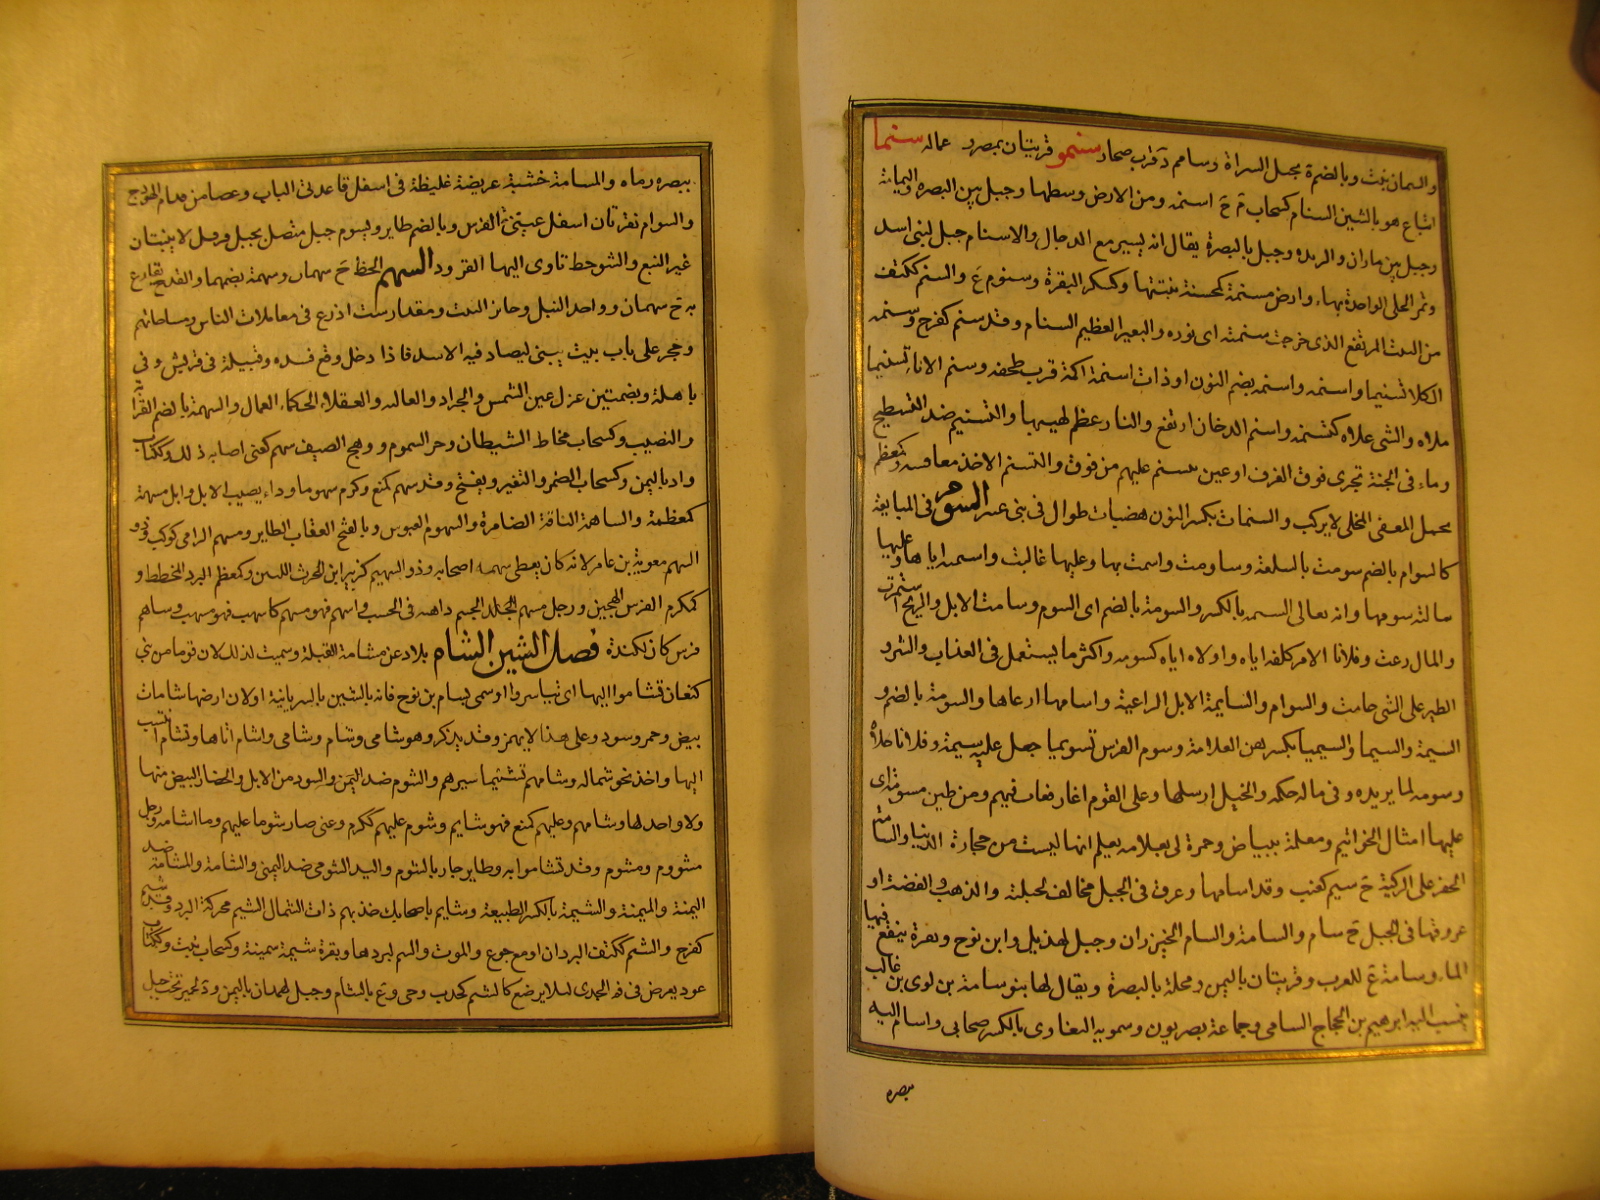 والسمان نبت وبالضم ة بجبل السراة وسامم ة قرب صحار سنمو قريتان بمصر و عماله سنما
اتباع هو بالشين السنام كسحاب م ج اسنمه ومن الارض وسطها وجبل بين البصره واليمامة
وجبل بين ماوان والربذه وجبل بالبصرة يقال انه يسير مع الدجال والاسنام جبل لبنى اسد
وثمر الحلى الواحدة بهاء وارض مسنمة كمحسنة تنبتها وكسكر البقرة وسنوم ع والسنم ككتف
من النبت المرتفع الذى خرجت سنمته اى نوره والبعير العظيم السنام وقد سنم كفرح وسنمه
الكلا تسنيما واسنمه واسنمه بضم النون او ذات اسنمة اكمة قرب طخفه وسنم الاناء تسنيما
ملاه والشى علاه كتسنمه واسنم الدخان ارتفع والنار عظم لهيبها والتسنيم ضد التسطيح
وماء فى الجنة تجرى فوق الغرف او عين تتسنم عليهم من فوق والتسنم الاخذ مغافصه وكمعظم
بجمل المعفى المخلى لا يركب والسنمات بكسر النون هضبات طوال فى بنى السوم فى المبايعة
كالسوام بالضم سومت بالسلعة وساومت واستمت بها وعليها غاليت واستمته اياها وعليها
سالته سومها وانه لغالى السيمه بالكسر والسومة بالضم اى السوم وسامت الابل والريح استمرت
والمال رعت وفلانا الامر كلفه اياه واولاه اياه كسومه واكثر ما يستعمل فى العذاب والشر و
الطير على الشى حامت والسوام والسايمة الابل الراعية واسامها ارعاها والسومة بالضم و
السيمة والسيما والسيميا بكسرهن العلامة وسوم الفرس تسويما جعل عليه سيمة وفلانا خلاه
وسومه لما يريده وفى ماله حكمه والخيل ارسلها وعلى القوم اغار فعاث فيهم ومن طين مسومة اى
عليها امثال الخواتيم ومعلمة ببياض وحمرة او بعلامه يعلم انها ليست من حجارة الدنيا والسامة
الحفر على الركية ج سيم كعنب وقد اسامها وعرق فى الجبل مخالف لجبلة والذهب والفضة او
عروقها فى الجبل ج سام والسامة والسام الخيزران وجبل لهذيل وابن نوح ونقرة ينقع فيها
الماء وسامة ع للعرب وقريتان باليمن ومحلة بالبصرة ويقال لها بنو سامة بن لوى بن غالب
ينسب اليه ابرهيم بن الحجاج السامى وجماعة بصريون وسمويه البغاوى بالكسر صحابى واسام اليه
ببصره
ببصره رماه والمسامة خشبة عريضة غليظة فى اسفل قاعدتى الباب وعصا من قدام الهودج
والسوام نقرتان اسفل عينى الفرس وبالضم طاير ويسوم جبل متصل بجبل فرقد لا ينبتان
غير النبع والشوحط تاوى اليها القرود السهم الحظ ج سهمان وسهمة بضمهما والقدح يقارع
به ج سهام وواحد النبل وجائز البيت ومقدار ست اذرع فى معاملات الناس ومساحاتهم
وحجر على باب بيت يبنى ليصاد فيه الاسد فاذا دخل وقع فسده وقبيلة فى قريش وفى
باهلة وبضمتين غزل عين الشمس والحرارة الغالبه والعقلاء الحكماء العمال والسهمة بالضم القرابة
والنصيب وكسحاب مخاط الشيطان وحر السموم ووهج الصيف سهم كعنى اصابه ذلك وككتاب
واد باليمن وكسحاب الضمر والتغير ويفتح وقد سهم كمنع وكرم سهوما وداء يصيب الابل وابل مسهمة
كمعظمة والساهمة الناقة الضامرة والسهوم العبوس وبالفتح العقاب الطاير وسهم الرامى كوكب وذو
السهم معوية بن عامر لانه كان يعطى سهمه اصحابه وذو السهيم كزبير ابن الحرث الليثى وكمعظم البرد المخطط و
كمكرم الفرس الهجين ورجل مسهم الجسد الجيم ذاهبه فى الحب واسهم فهو مسهم كاسهب فهو مسهب وساهم
فرس كان لكندة فصل الشين الشام بلاد عن مشامة القبلة وسميت لذلك لان قوما من بنى
كنعان تشاموا اليها اى تياسروا او سمى بسام بن نوح فانه بالشين بالسريانية او لان ارضها شامات
بيض وحمر وسود وعلى هذا لا يهمز وقد يذكر وهو شامى وشام وشامى واشام اتاها وتشام انتسب
اليها واخذ نحو شماله وشامهم تشئيما سيرهم والشوم ضد اليمن والسود من الابل والحضار البيض منها
ولا واحد لها وشامهم وعليهم كمنع فهو شايم وشوم عليهم ككرم وعنى صار شوما عليهم وما اشامه ورجل
مشووم ومشوم وقد تشاموا به وطاير جار بالشوم واليد الشومى ضد اليمنى والشامة والمشامة ضد
اليمنة والميمنة والشيمة بالكسر الطبيعة وشايم باصحابك خذ بهم ذات الشمال الشبم محركة البرد وقد شبم
كفرح والشبم ككتف البردان او مع جوع والموت والسم لبردها وبقرة شبمة سمينة وكسحاب نبت وككتاب
عود يعرض فى فم الجدى لئلا يرضع كالشبم كحدب وحى وع بالشام وجبل لهمدان باليمن و د لحمير تحت جبل